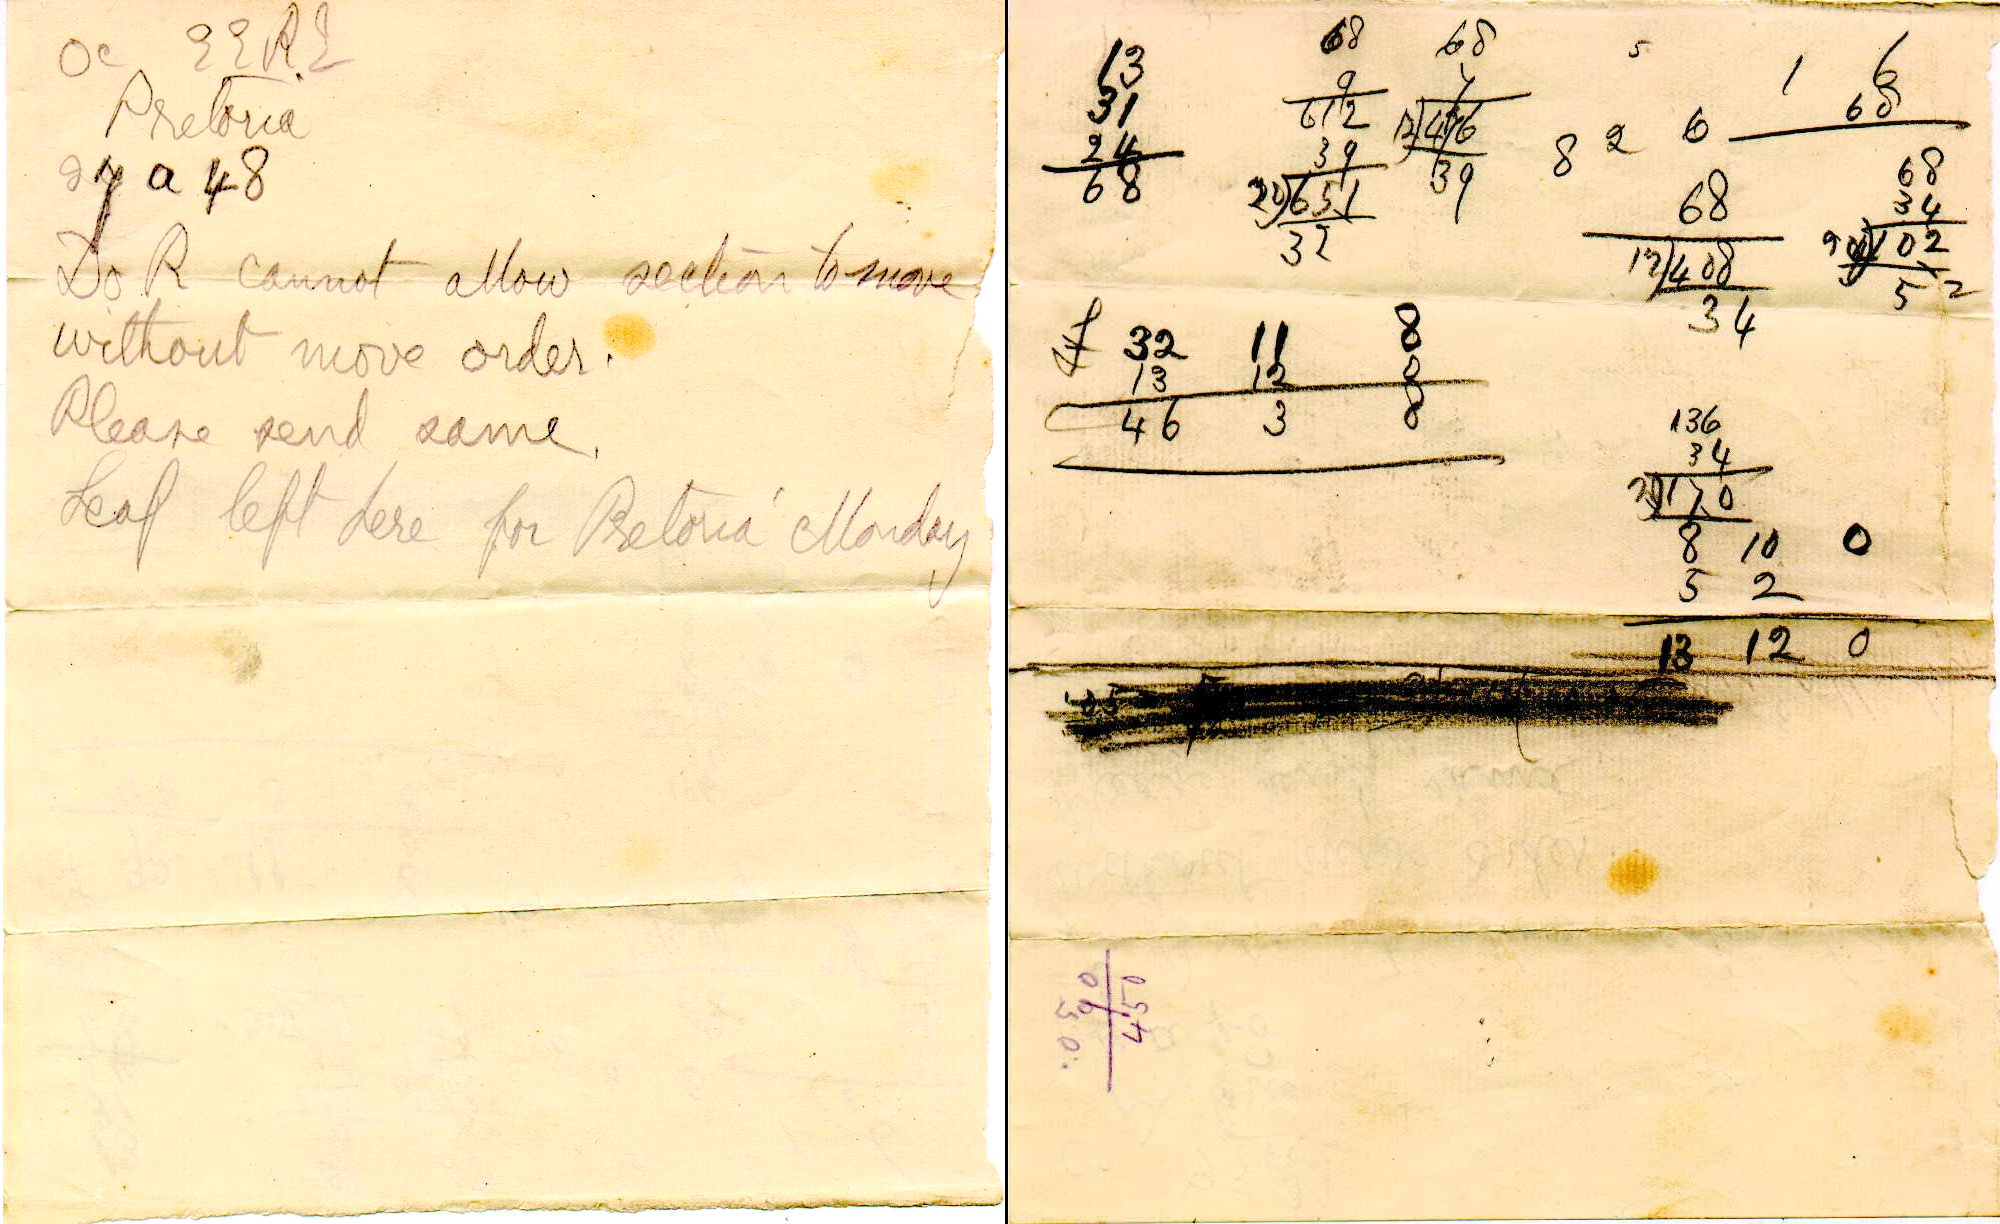 Oc EERE
Pretoria
27 a 48
DoR cannot allow section to move
without move order.
Please send same.
Leaf left here for Pretoria Monday
13
31
24
68
68
9
612
39
20)651
32
68
7
12)476
39
5
8 2 6
68
12)408
34
1 6
68
68
34
20)102
5 2
£ 32 11 8
13 12 0
46 3 8
136
34
20)170
8 10 0
5 2
13 12 0
450
90
50